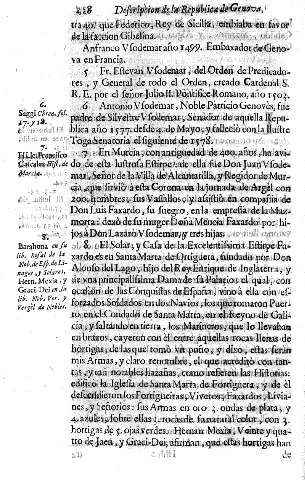 228 Descripcion de la Republica de Genova,
tra 40. que Federico, Rey de Sicilia, embiaba en favor
de la faccion Gibelina.
Anfranco Vsodemar año 1499. Embaxador de Geno-
va en Francia.
5 Fr. Estevan Vsodemar, del Orden de Predicadores, y General de todo el Orden, creado Cardenal S.
R. E. por el señor Julio II. Pontifice Romano, año 1502.
6 Antonio Vsodemar, Noble Patricio Genovès, fue
padre de Silvestre Vsodemar, Senador de aquella Repu-
blica año 1577. desde 4. de Mayo, y falleciò con la Ilustre
Toga Senatoria el siguiente de 1578.
7 En Murcia, con antiguedad de 400. años, ha avi-
do de esta Ilustre Estirpe: de ella fue Don Juan Vsode-
mar, Señor de la Villa de Alcantarilla, y Regidor de Mur-
cia, que sirviò à esta Corona en la jornada de Argèl con
200. hombres, sus Vasallos, y assistiò en compañia de
Don Luis Faxardo, su suegro, en la empressa de la Ma-
mora: dexò de su muger Doña Mencia Faxardo por hi-
jos à Don Lazaro Vsodemar, y tres hijas.
8 El Solar, y Casa de la Excelentissima Estirpe Fa-
xardo es en Santa Marta de Ortiguera, fundado por Don
Alonso del Lago, hijo del Rey Enrique de Inglaterra, y
de vna principalissima Dama de su Palacio; el qual, con
ocasion de las Conquistas de España, vino à ella con es-
forzados Soldados en dos Navios, los que tomaron Puer-
to en el Condado de Santa Marta, en el Reyno de Gali-
cia, y saltando en tierra, los Marineros, que lo llevaban
en brazos, cayeron con èl entre aquellas rocas llenas de
hortigas, de las que tomò vn puño, y dixo, estas seràn
mis Armas, y claro renombre, el que acreditò con tan-
tas, y tan notables hazañas, como refieren las Historias:
edificò la Iglesia de Santa Marta de Fortiguera, y de èl
descendieron los Fortigueiras, Viveros, Faxardos, Livia-
nes, y Señorios: sus Armas en oro 3. ondas de plata, y
4. azules, sobre ellas 3. rocas de su natural color, con 3.
hortigas de 5. ojas verdes. Hernan Mexìa, Veinte y qua-
tro de Jaen, y Graci-Dei, afirman, que estas hortigas han
de
6.
Saggi Chron. fol.
17. y 18.
7.
El Lic. Francisco
Cascales Hist. de
Murcia.
8.
Barahona en su
lib. Rosal de la
Nob. de Esp. de Li-
nages, y Solares.
Hern. Mexìa, y
Graci Dei en su
lib. Nob. Ver. y
Vergèl de Nobles.